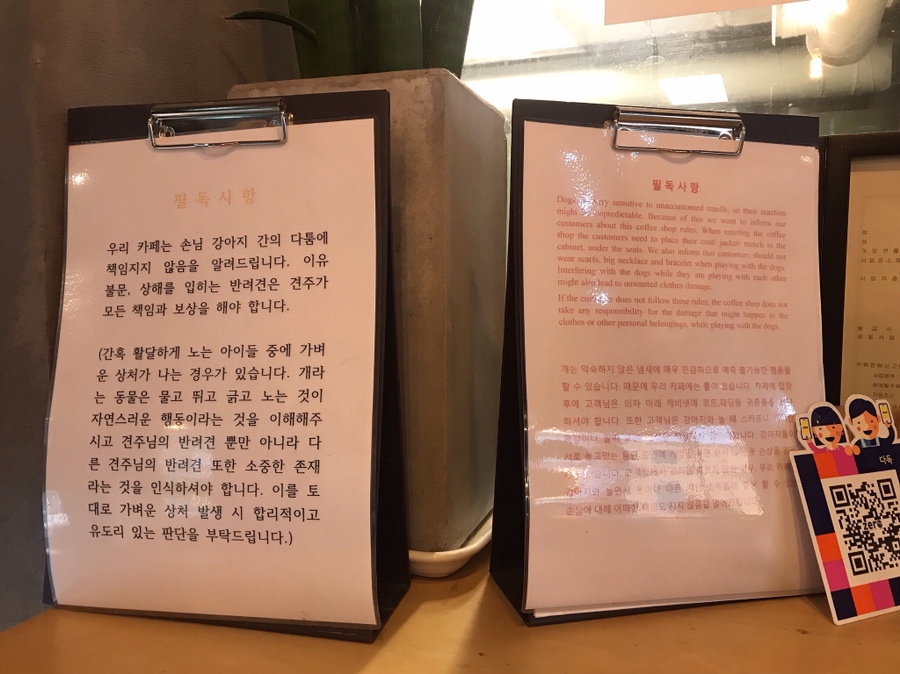 필독사항
우리 카페는 손님 강아지 간의 다툼에
책임지지 않음을 알려드립니다. 이유
불문, 상해를 입히는 반려견은 견주가
모든 책임과 보상을 해야 합니다.
(간혹 활달하게 노는 아이들 중에 가벼
운 상처가 나는 경우가 있습니다. 개라
는 동물은 물고 뛰고 긁고 노는 것이
자연스러운 행동이라는 것을 이해해주
시고 견주님의 반려견 뿐만 아니라 다
른 견주님의 반려견 또한 소중한 존재
라는 것을 인식하셔야 합니다. 이를 토
대로 가벼운 상처 발생 시 합리적이고
유도리 있는 판단을 부탁드립니다.)
필독사항
sensitive to unaccustomed smells, so their reaction
might Because of this we want to inform our
customers about this coffee shop rules. When entering the coffee
shop the customers need to place their coat/ jacket/ trench in the
cabinet, under the seats. We also inform that customers should not
wear scarfs, big necklace and bracelet when playing with the dogs.
Interfering with the dogs while they are playing with each other
might also lead to unwanted clothes damage.
If the customer does not follow these rules, the coffee shop does not
take any responsibility for the damage that might happen to the
clothes or other personal belongings, while playing with the dogs.
개는 익숙하지 않은 냄새에 매우 민감하므로 예측 불가능한 행동을
할 수 있습니다. 때문에 우리 카페에는 룰이 있습니다. 카페에 입장
후에 고객님은 의자 아래 캐비넷에 코트,패딩등 귀중품을
하셔야 합니다. 또한 고객님은 강아지와 놀 때
강아지들이
서로 놀고있는 손상을
우리 카페
강아지와 놀면서 옷이나 다른
손상에 대해
다독
zero